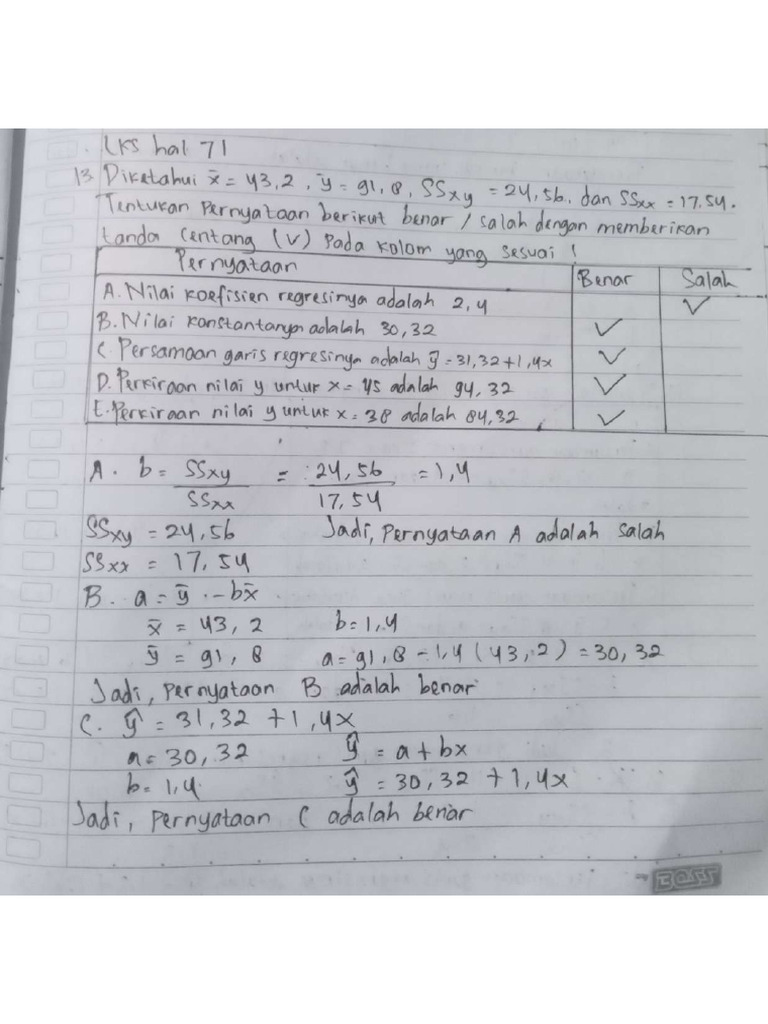 LKS hal 71
13 Diketahui x̄ = 43,2, ȳ = 91,8, SSxy = 24,56. dan SSxx = 17,54.
Tentukan Pernyataan berikut benar / salah dengan memberikan
tanda centang (V) Pada kolom yang sesuai !
Pernyataan Benar Salah
A. Nilai koefisien regresinya adalah 2,4 ✓
B. Nilai konstantanya adalah 30,32 ✓
C. Persamaan garis regresinya adalah ŷ = 31,32 + 1,4x ✓
D. Perkiraan nilai y untuk x = 45 adalah 94,32 ✓
E. Perkiraan nilai y untuk x = 38 adalah 84,32 ✓
A. b = SSxy / SSxx = 24,56 / 17,54 = 1,4
SSxy = 24,56 Jadi, Pernyataan A adalah salah
SSxx = 17,54
B. a = ȳ - bx̄
x̄ = 43,2 b = 1,4
ȳ = 91,8 a = 91,8 - 1,4 (43,2) = 30,32
Jadi, Pernyataan B adalah benar
C. ŷ = 31,32 + 1,4x
a = 30,32 ŷ = a + bx
b = 1,4 ŷ = 30,32 + 1,4x
Jadi, Pernyataan C adalah benar
BOSS